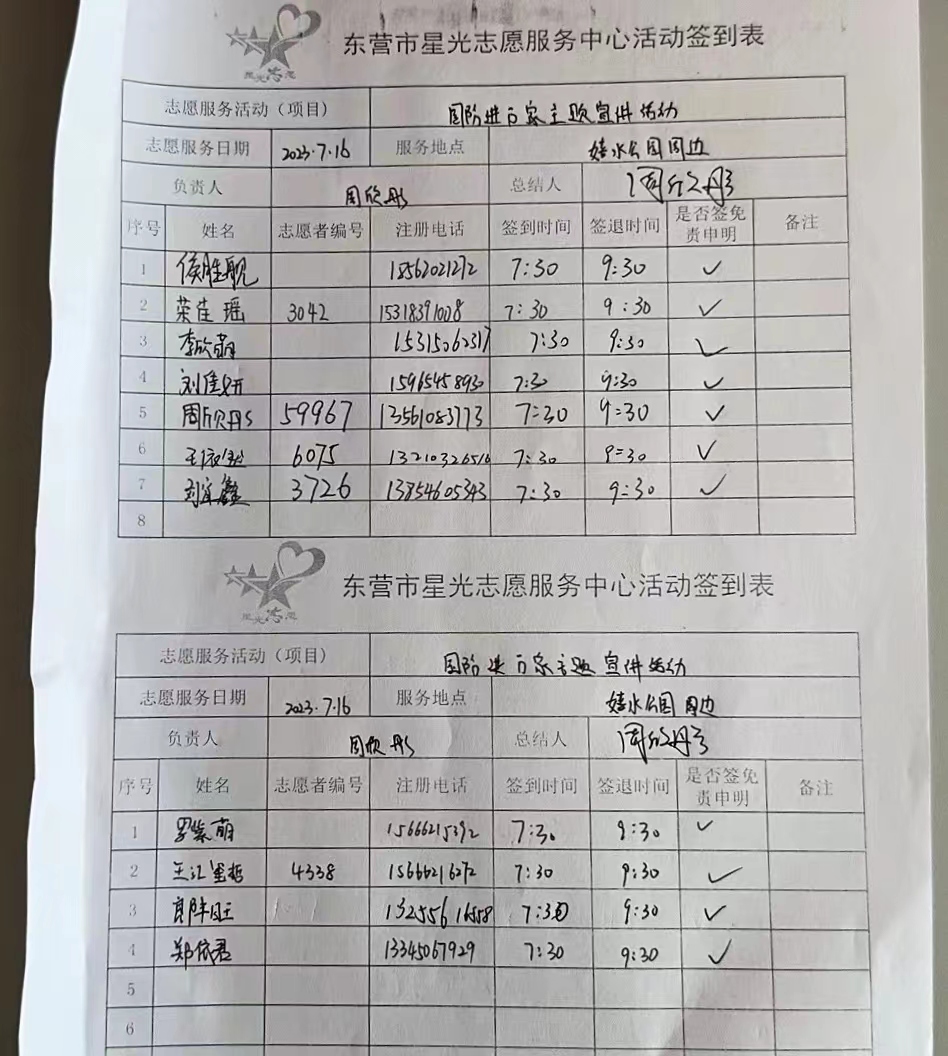 星光志愿
东营市星光志愿服务中心活动签到表
志愿服务活动（项目） 国防进万家主题宣讲活动
志愿服务日期 2023.7.16 服务地点 嬉水公园周边
负责人 周欣彤 总结人 周欣彤
序号 姓名 志愿者编号 注册电话 签到时间 签退时间 是否签免责申明 备注
1 侯胜舰 18562021272 7:30 9:30 ✓
2 荣佳瑶 3042 15318391028 7:30 9:30 ✓
3 李欣萌 15315062317 7:30 9:30 ✓
4 刘佳妍 15965458930 7:30 9:30 ✓
5 周欣彤 59967 13561083773 7:30 9:30 ✓
6 6075 13210326516 7:30 9:30 ✓
7 3726 13854605343 7:30 9:30 ✓
8
星光志愿
东营市星光志愿服务中心活动签到表
志愿服务活动（项目） 国防进万家主题宣讲活动
志愿服务日期 2023.7.16 服务地点 嬉水公园周边
负责人 周欣彤 总结人 周欣彤
序号 姓名 志愿者编号 注册电话 签到时间 签退时间 是否签免责申明 备注
1 罗紫萌 15666215392 7:30 9:30 ✓
2 4338 15666216272 7:30 9:30 ✓
3 13255616558 7:30 9:30 ✓
4 郑依君 13345067929 7:30 9:30 ✓
5
6